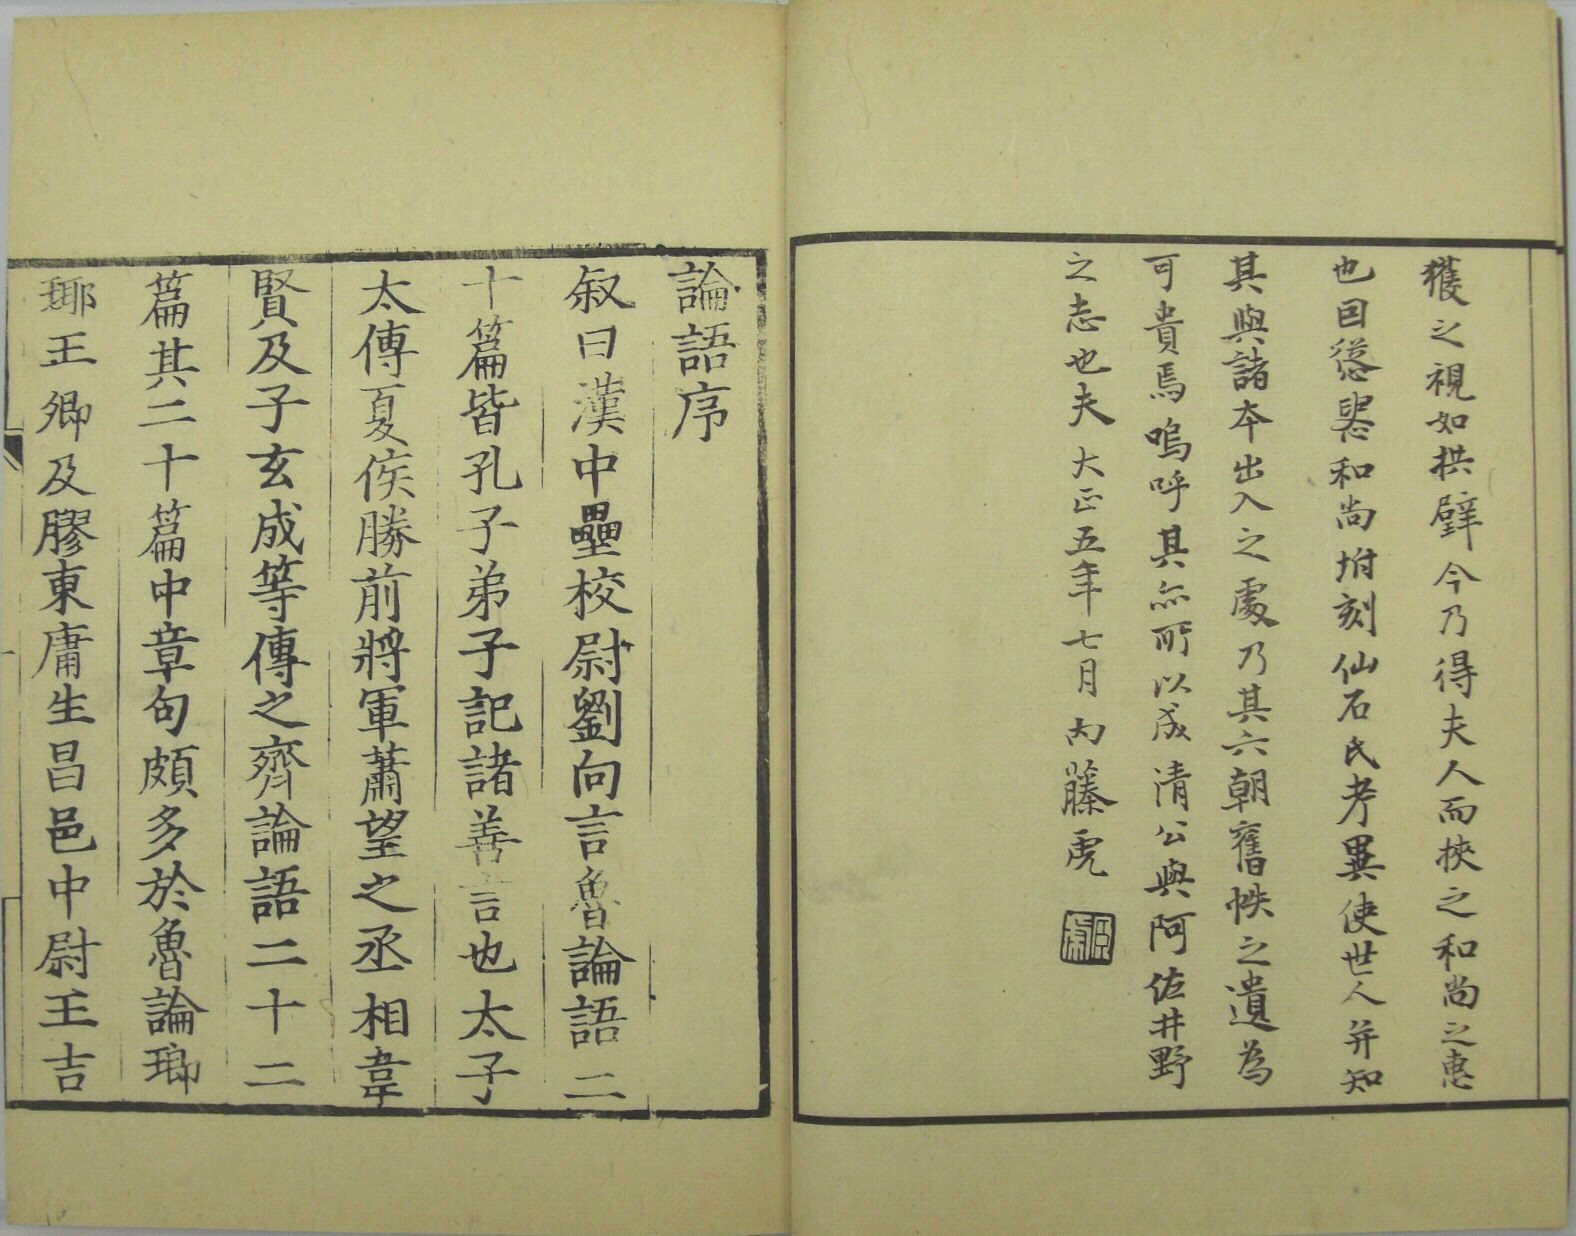 獲之視如拱璧今乃得夫人而挾之和尚之惠
也因慫慂和尚坿刻仙石氏考異使世人并知
其與諸本出入之處乃其六朝舊帙之遺為
可貴焉嗚呼其亦所以成清公與阿佐井野
之志也夫大正五年七月内藤虎
論語序
叙曰漢中壘校尉劉向言魯論語二
十篇皆孔子弟子記諸善言也太子
太傅夏侯勝前將軍蕭望之丞相韋
賢及子玄成等傳之齊論語二十二
篇其二十篇中章句頗多於魯論瑯
琊王卿及膠東庸生昌邑中尉王吉